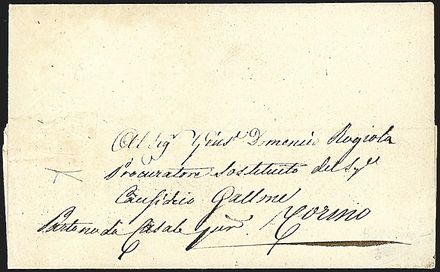 Al Sig.r Gius.e Domenico Rogrola
Procuratore Sostituito del Sig.r
Causidico Gallme
Partono da Casale per Torino